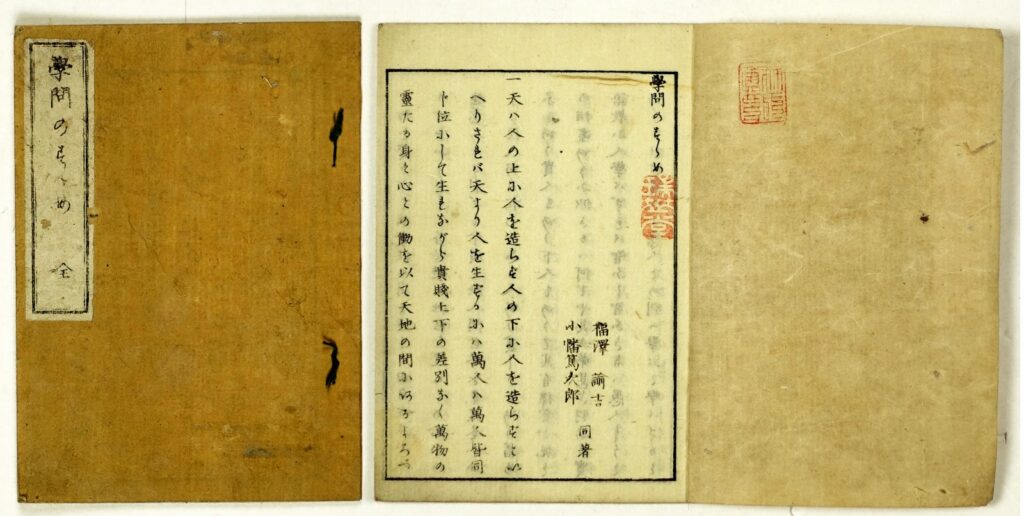 學問のすゝめ 全
學問のすゝめ
福澤諭吉
小幡篤次郎
同著
一天ハ人の上に人を造らず人の下に人を造らずとい
へりされバ天より人を生ずるにハ萬人ハ萬人皆同
じ位にして生れながら貴賤上下の差別なく萬物の
靈たる身と心との働を以て天地の間にあるよろづ